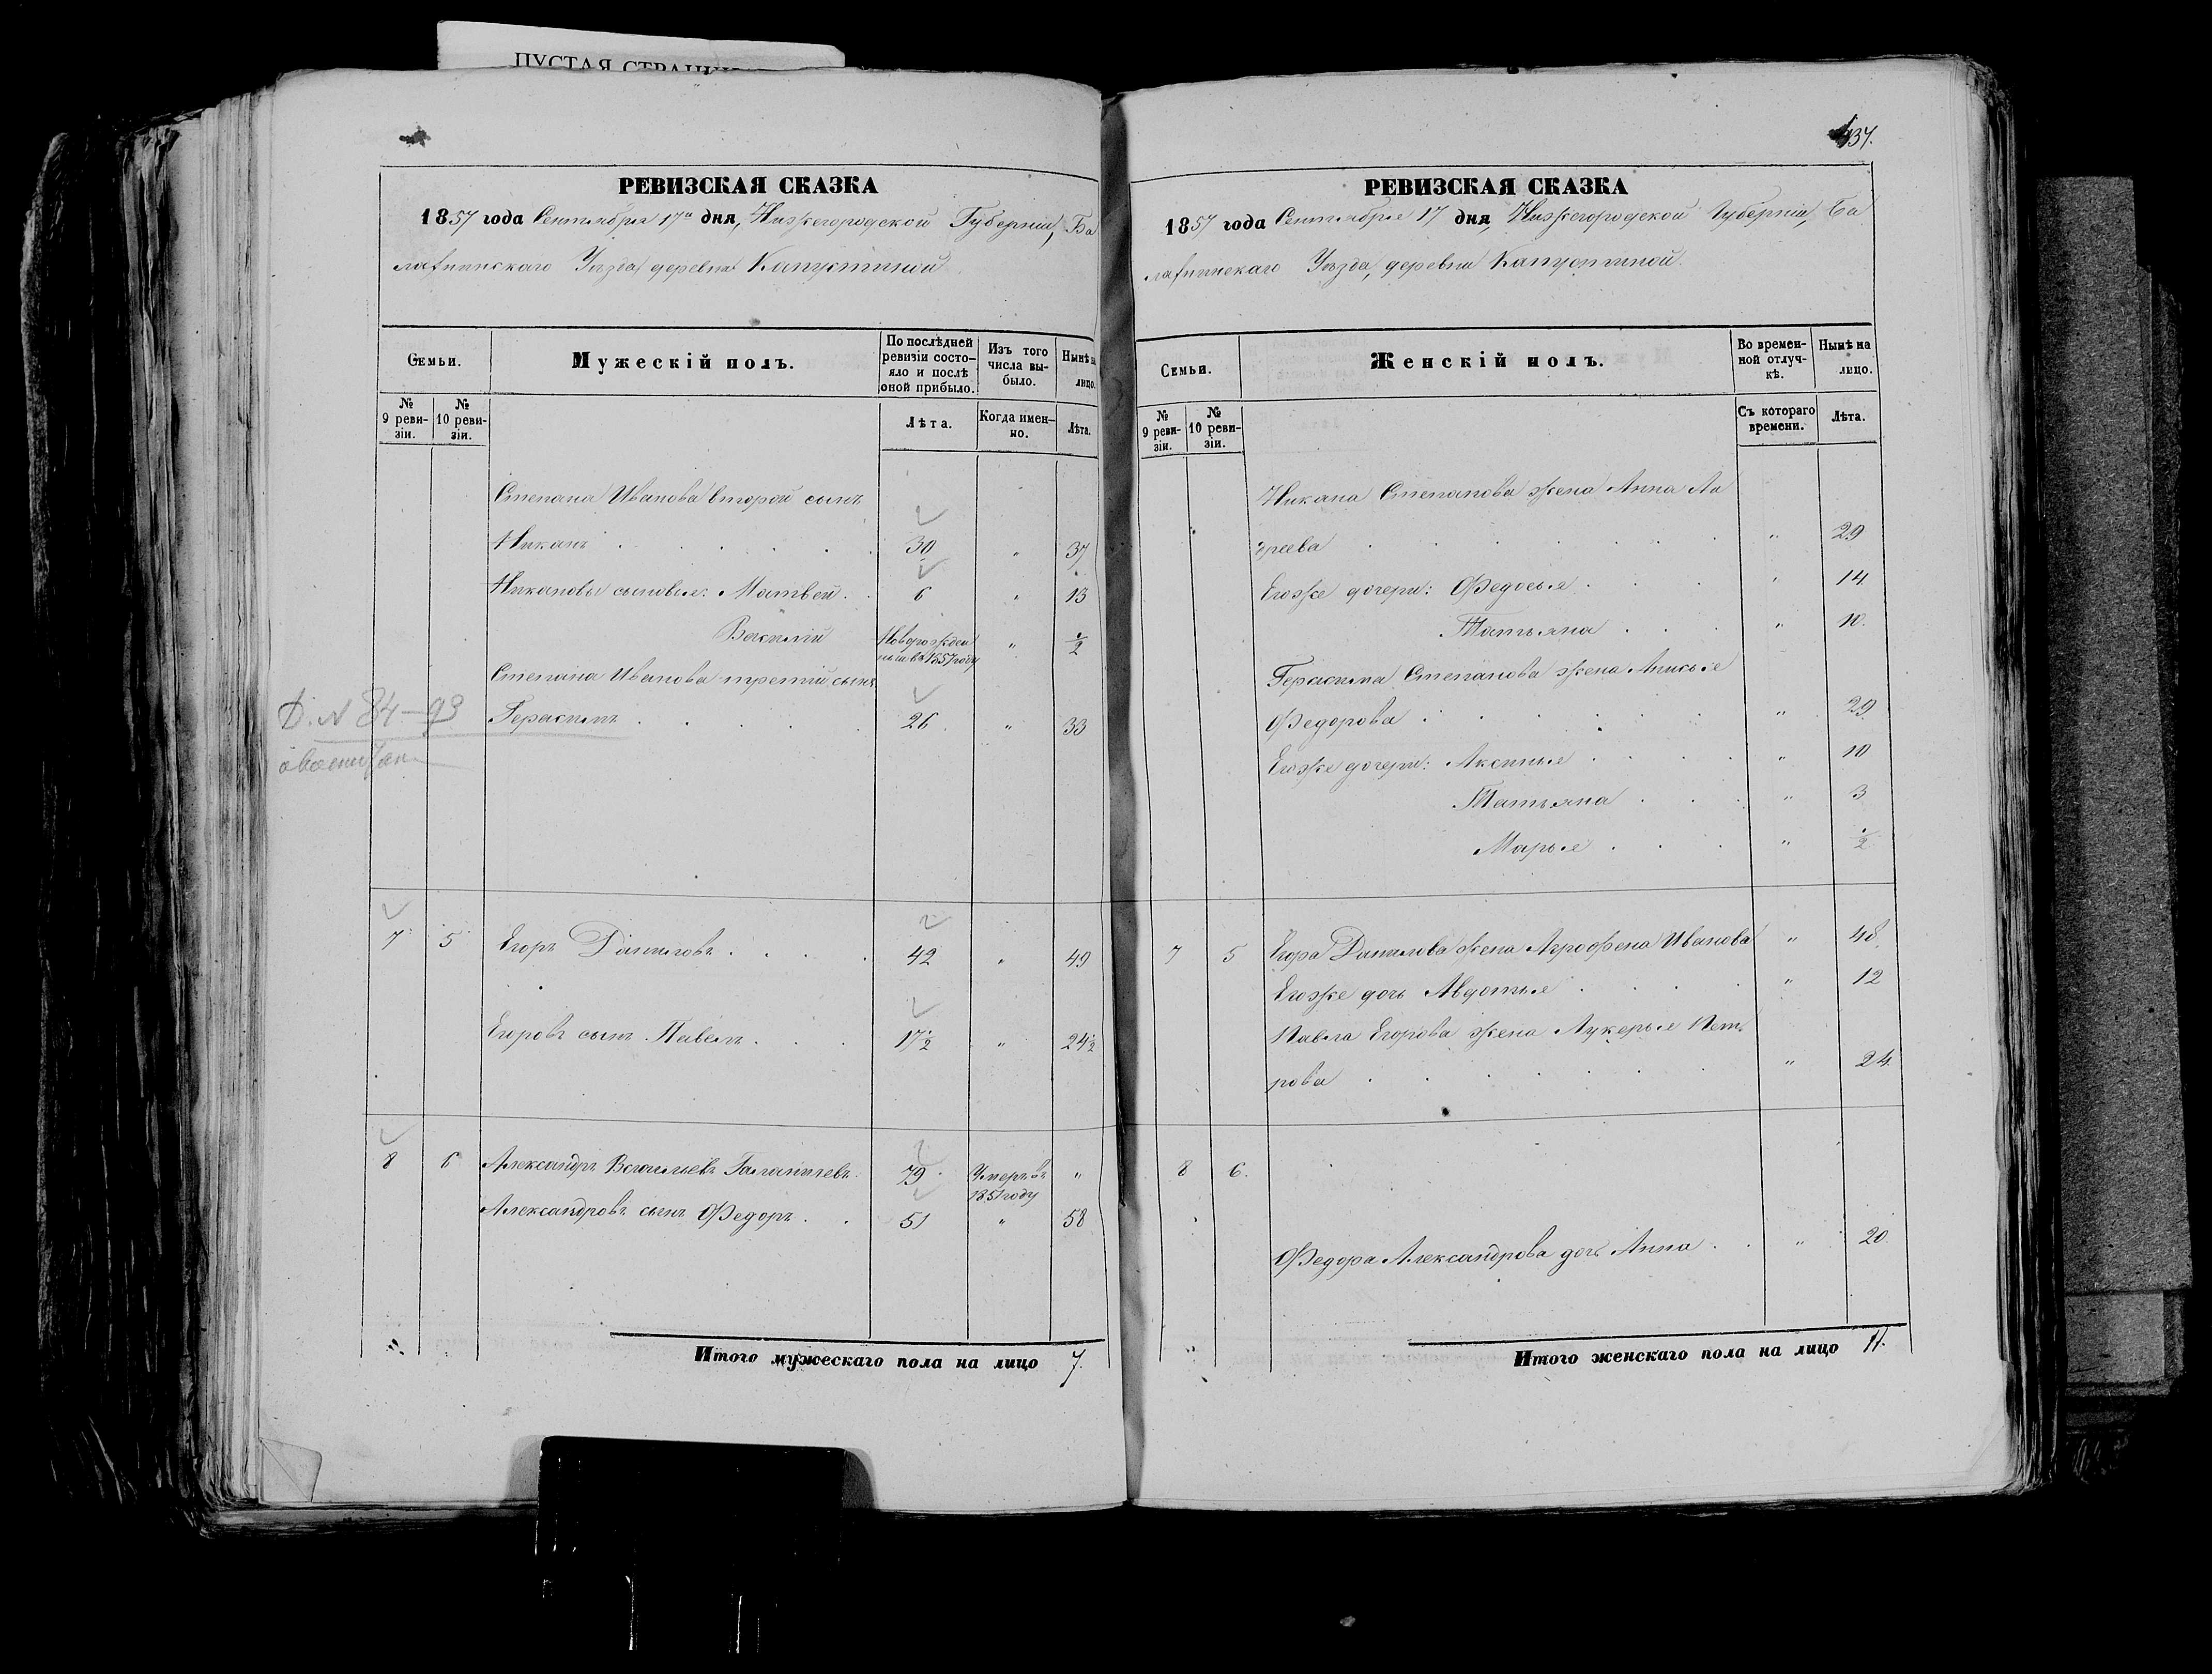 ПУСТАЯ СТРАНИЦА
РЕВИЗСКАЯ СКАЗКА
1857 года Сентября 17го дня, Нижегородской Губернiи, Ба
лахнинскаго Уѣзда, деревни Капустиной
Семьи.
Мужескiй полъ.
По послѣдней ревизiи состояло и послѣ оной прибыло.
Изъ того числа выбыло.
Нынѣ на лицо.
№ 9 ревизiи.
№ 10 ревизiи.
Лѣта.
Когда именно.
Лѣта.
Степана Иванова второй сынъ
Никанъ . . . . . 30 " 37
Никановы сыновья: Матвей . 6 " 13
Василiй Новорожден
ный въ 1857 году " 1/2
Степана Иванова третiй сынъ
Герасимъ . . . . 26 " 33
Д. № 84—93
7 5 Егоръ Даниловъ . . . . 42 " 49
Егоровъ сынъ Павелъ . . . 17 1/2 " 24 1/2
8 6 Александръ Васильевъ 79 Умеръ въ 1851 году "
Александровъ сынъ Федоръ . . 51 " 58
Итого мужескаго пола на лицо 7.
437.
РЕВИЗСКАЯ СКАЗКА
1857 года Сентября 17 дня, Нижегородской Губернiи, Ба
лахнинскаго Уѣзда, деревни Капустиной.
Семьи.
Женскiй полъ.
Во временной отлучкѣ.
Нынѣ на лицо.
№ 9 ревизiи.
№ 10 ревизiи.
Съ котораго времени.
Лѣта.
Никана Степанова жена Анна Ан
дреева . . . . . . . " 29
Егоже дочери: Федосья . . . " 14
Татьяна . . . " 10.
Герасима Степанова жена Анисья
Федорова . . . . . . " 29
Егоже дочери: Аксинья . . . . " 10
Татьяна . . . " 3
Марья . . . " 1/2
7 5 Егора Данилова жена Агрофена Иванова " 48.
Егоже дочь Авдотья . . . . " 12
Павла Егорова жена Лукерья Пет
рова . . . . . . . " 24.
8 6.
Федора Александрова дочь Анна . . " 20.
Итого женскаго пола на лицо 11.